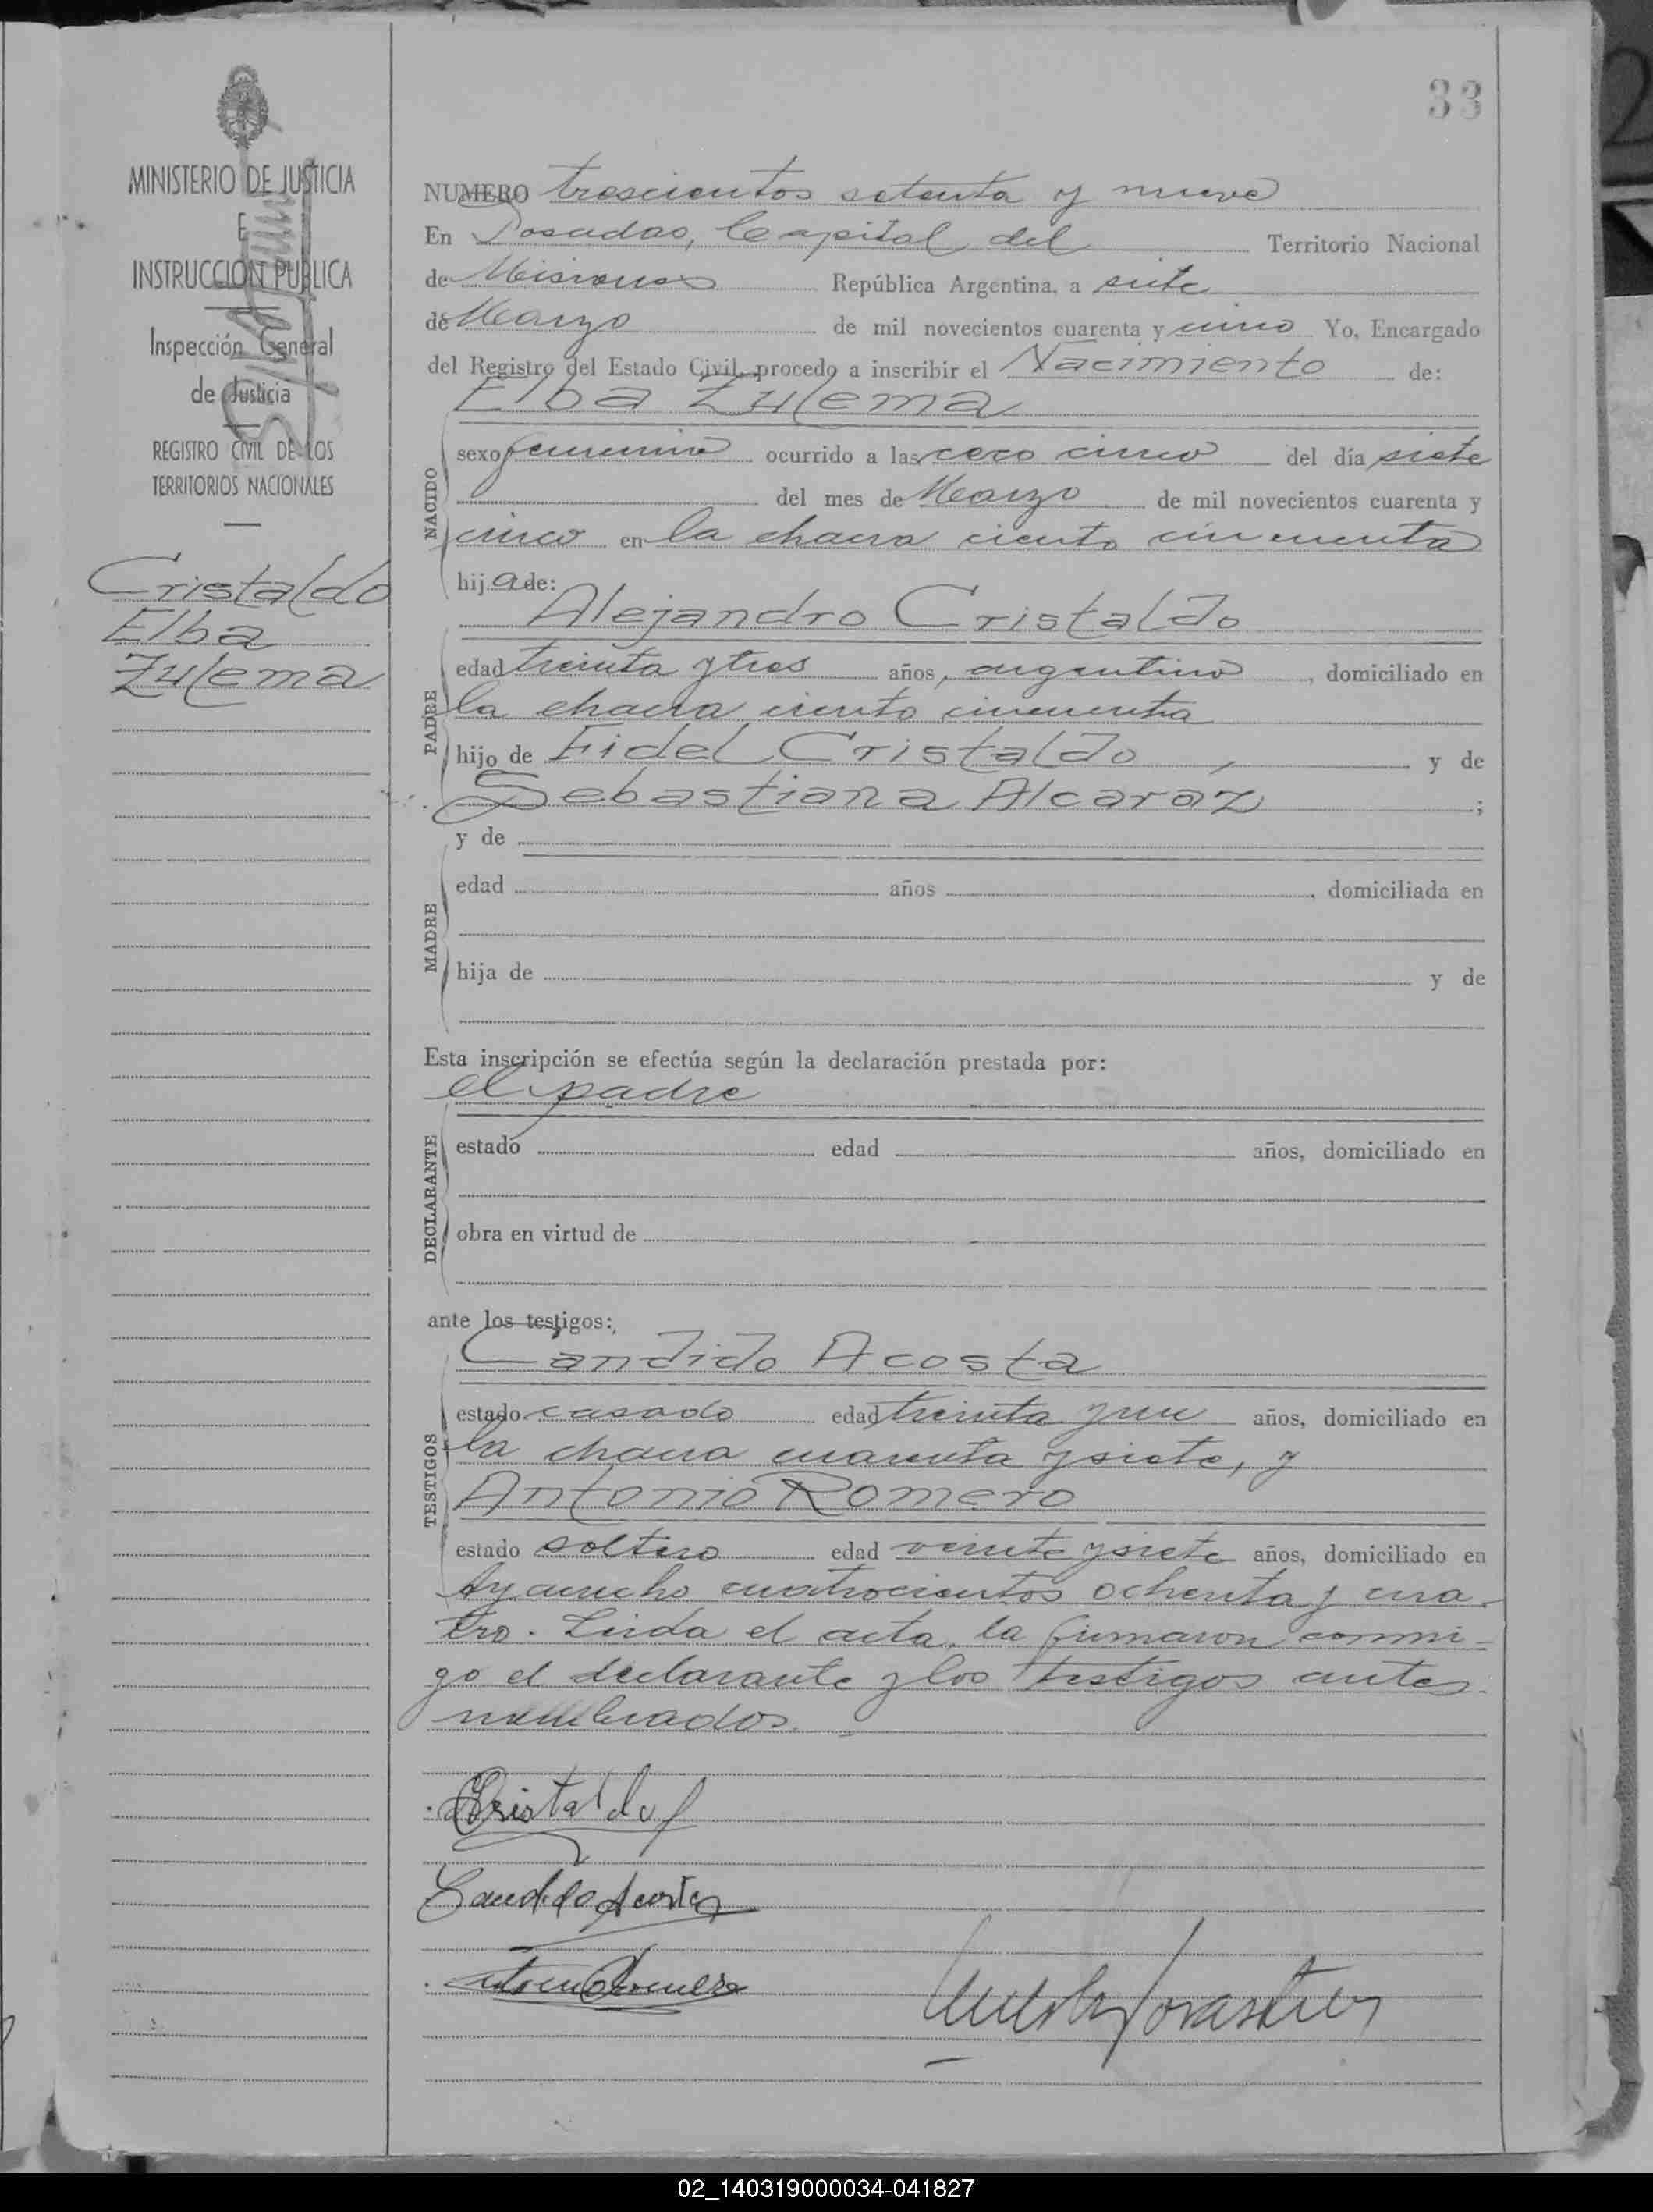 33
MINISTERIO DE JUSTICIA
E
INSTRUCCION PUBLICA
Inspección General
de Justicia
REGISTRO CIVIL DE LOS
TERRITORIOS NACIONALES
Cristaldo
Elba
Zulema
NUMERO trescientos setenta y nueve
En Posadas, Capital del Territorio Nacional
de Misiones República Argentina, a siete
de Marzo de mil novecientos cuarenta y cinco Yo, Encargado
del Registro del Estado Civil, procedo a inscribir el Nacimiento de:
Elba Zulema
NACIDO
sexo femenino ocurrido a las cero cinco del día siete
del mes de Marzo de mil novecientos cuarenta y
cinco en la chacra ciento cincuenta
hija de:
Alejandro Cristaldo
PADRE
edad treinta y tres años, argentino, domiciliado en
la chacra ciento cincuenta
hijo de Fidel Cristaldo, y de
Sebastiana Alcaraz ;
y de
MADRE
edad años , domiciliada en
hija de y de
Esta inscripción se efectúa según la declaración prestada por:
el padre
DECLARANTE
estado edad años, domiciliado en
obra en virtud de
ante los testigos:
Candido Acosta
TESTIGOS
estado casado edad treinta y un años, domiciliado en
la chacra cuarenta y siete, y
Antonio Romero
estado soltero edad veinte y siete años, domiciliado en
Ayacucho cuatrocientos ochenta y cua-
tro. Leida el acta, la firmaron conmi-
go el declarante y los testigos antes
nombrados
Cristaldo
Candido Acosta
Antonio Romero
02_140319000034-041827